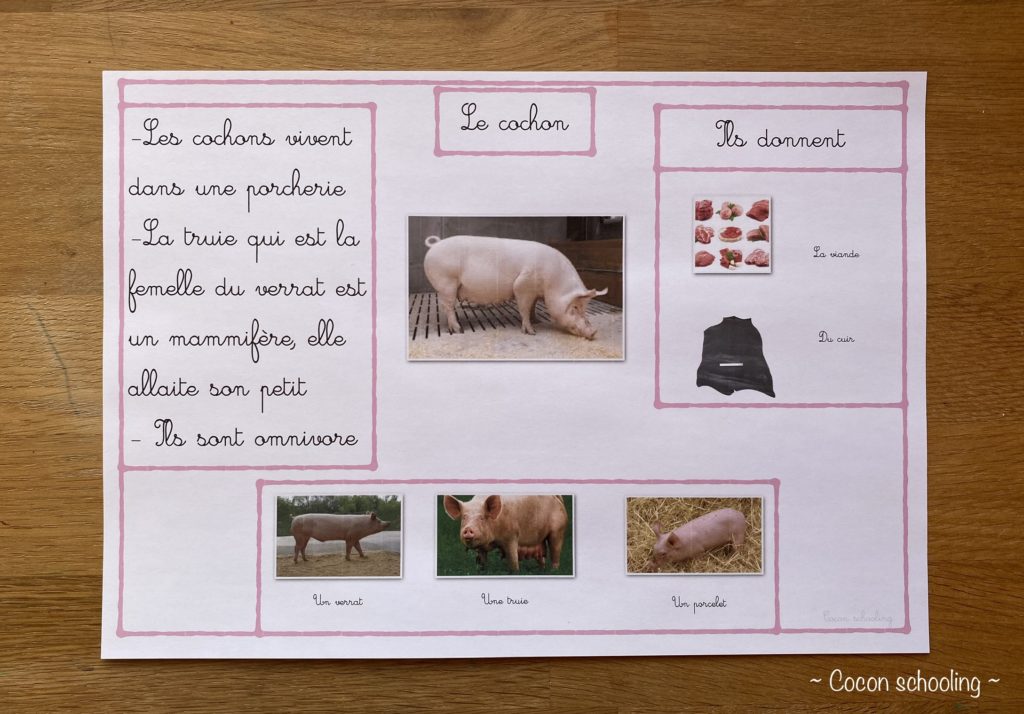 Le cochon
-Les cochons vivent
dans une porcherie
-La truie qui est la
femelle du verrat est
un mammifère, elle
allaite son petit
- Ils sont omnivore
Ils donnent
La viande
Du cuir
Un verrat
Une truie
Un porcelet
Cocon schooling
~ Cocon schooling ~